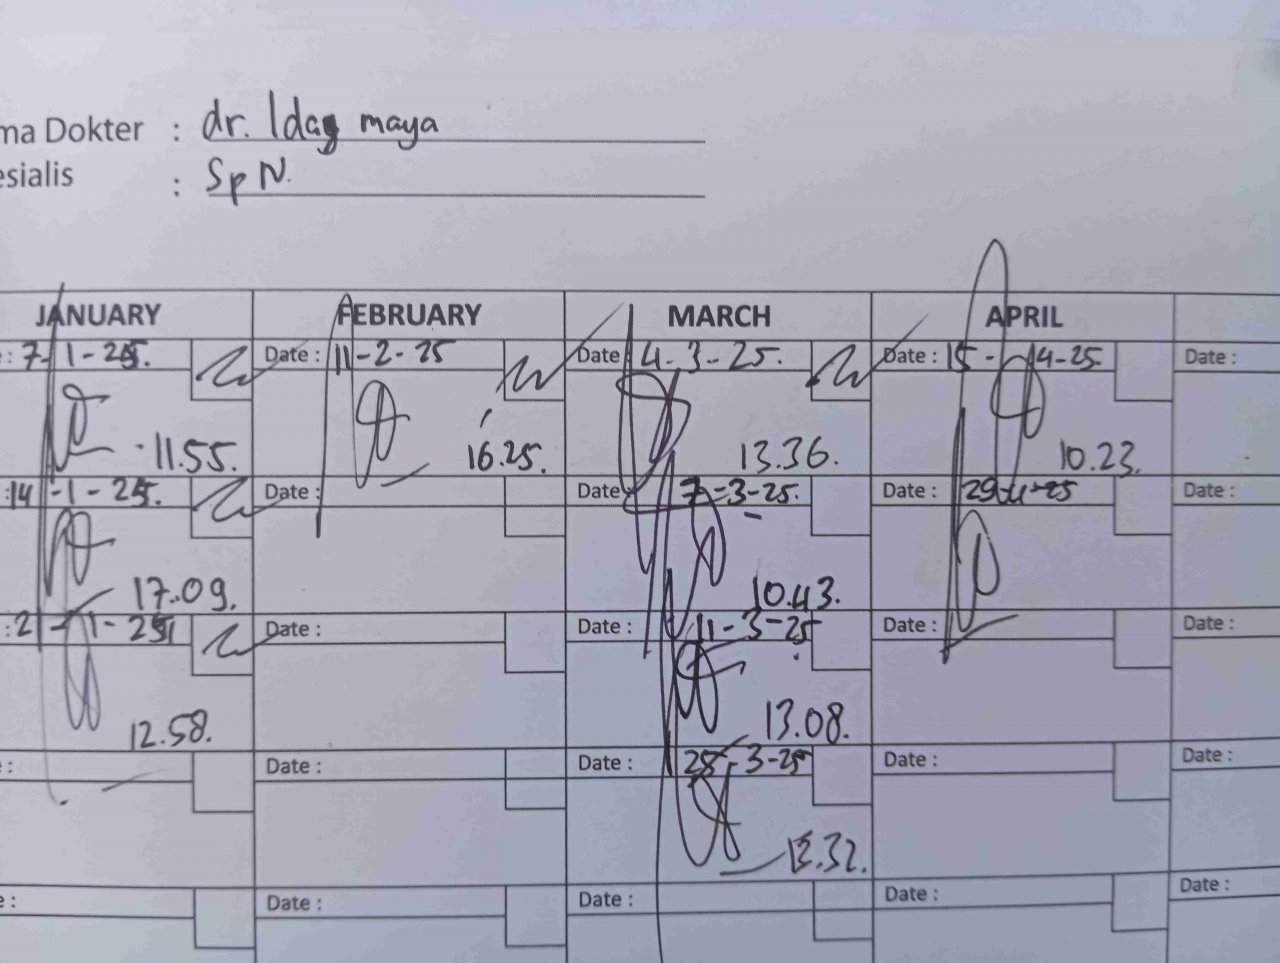 ma Dokter : dr. Idag maya
esialis : Sp N.
JANUARY FEBRUARY MARCH APRIL
: 7-1-25. Date : 11-2-25 Date 4-3-25. Date : 15-4-25 Date :
11.55. 16.25. 13.36. 10.23.
:14-1-25. Date : Date 7-3-25. Date : 29-4-25 Date :
17.09. 10.43.
:21-1-25 Date : Date : 11-3-25 Date : Date :
12.58. 13.08.
: Date : Date : 25-3-25 Date : Date :
13.32.
: Date : Date : Date : Date :